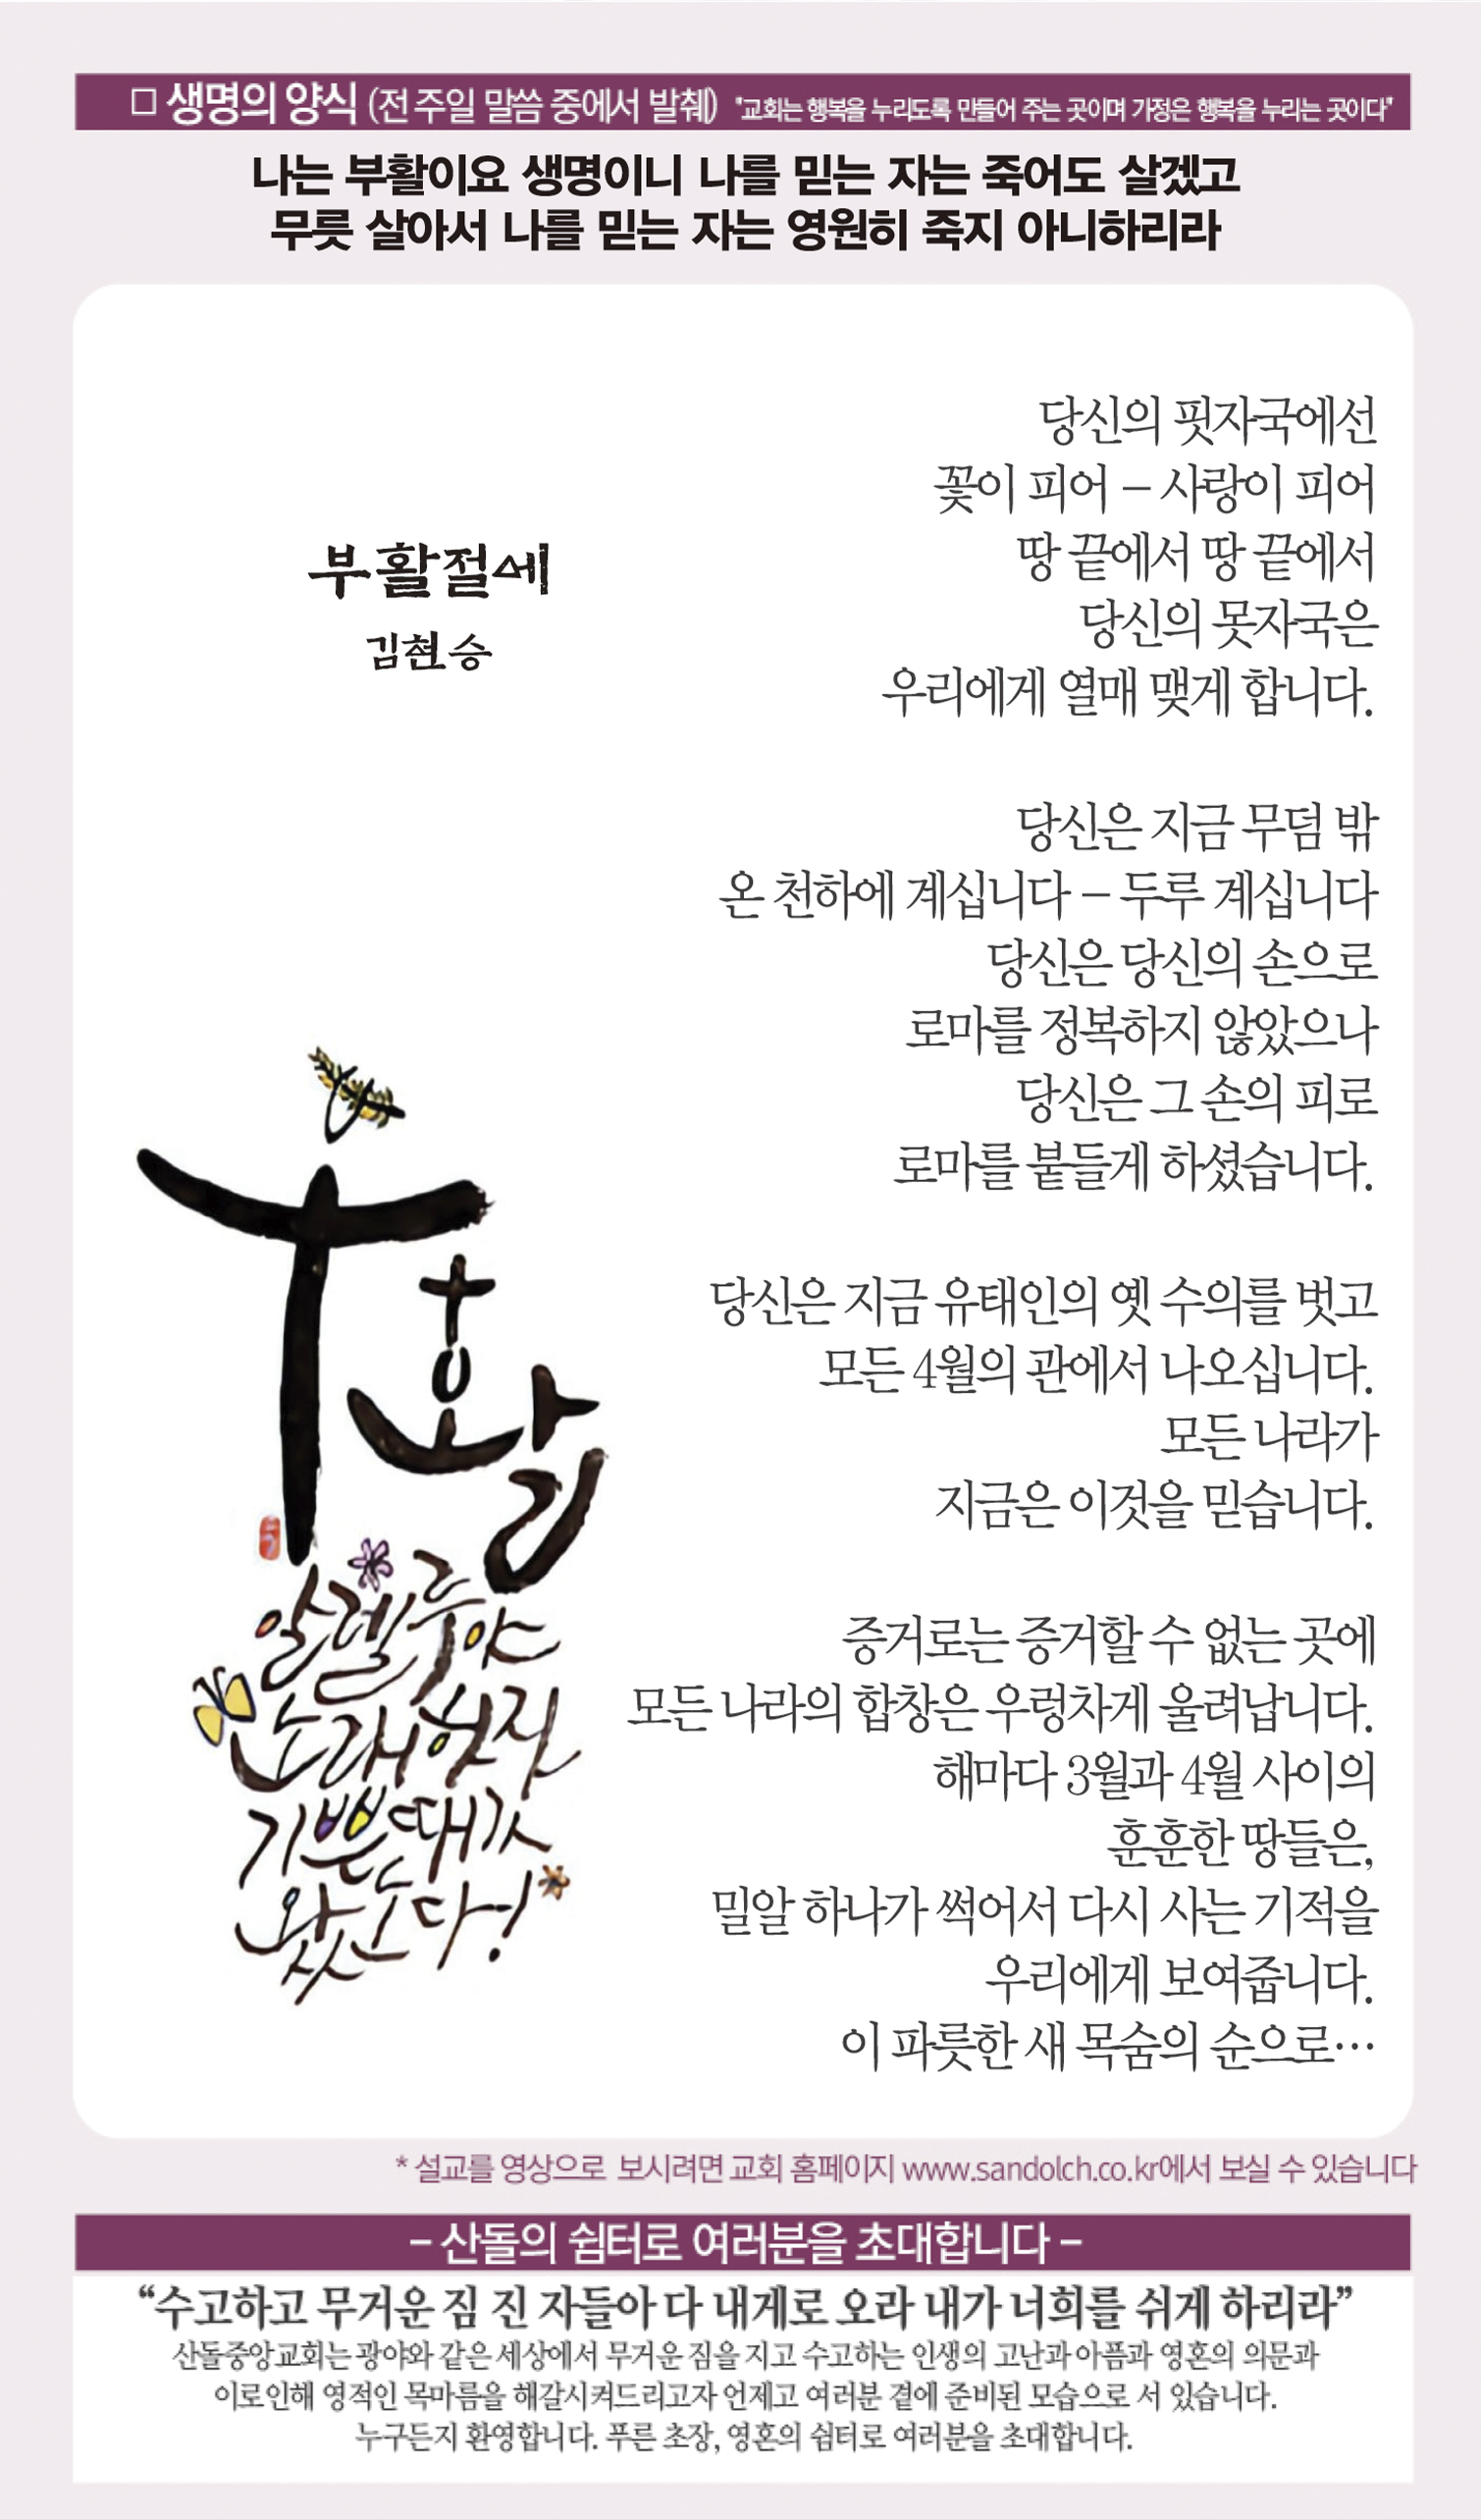 □ 생명의 양식 (전 주일 말씀 중에서 발췌) "교회는 행복을 누리도록 만들어 주는 곳이며 가정은 행복을 누리는 곳이다"
나는 부활이요 생명이니 나를 믿는 자는 죽어도 살겠고
무릇 살아서 나를 믿는 자는 영원히 죽지 아니하리라
부활절에
김현승
당신의 핏자국에선
꽃이 피어 – 사랑이 피어
땅 끝에서 땅 끝에서
당신의 못자국은
우리에게 열매 맺게 합니다.
당신은 지금 무덤 밖
온 천하에 계십니다 – 두루 계십니다
당신은 당신의 손으로
로마를 정복하지 않았으나
당신은 그 손의 피로
로마를 붙들게 하셨습니다.
당신은 지금 유태인의 옛 수의를 벗고
모든 4월의 관에서 나오십니다.
모든 나라가
지금은 이것을 믿습니다.
증거로는 증거할 수 없는 곳에
모든 나라의 합창은 우렁차게 울려납니다.
해마다 3월과 4월 사이의
훈훈한 땅들은,
밀알 하나가 썩어서 다시 사는 기적을
우리에게 보여줍니다.
이 파릇한 새 목숨의 순으로…
부활
알렐루야
노래하자
기쁜 때가
왔노다!
* 설교를 영상으로 보시려면 교회 홈페이지 www.sandolch.co.kr에서 보실 수 있습니다
– 산돌의 쉼터로 여러분을 초대합니다 –
“수고하고 무거운 짐 진 자들아 다 내게로 오라 내가 너희를 쉬게 하리라”
산돌중앙교회는 광야와 같은 세상에서 무거운 짐을 지고 수고하는 인생의 고난과 아픔과 영혼의 의문과
이로인해 영적인 목마름을 해갈시켜드리고자 언제고 여러분 곁에 준비된 모습으로 서 있습니다.
누구든지 환영합니다. 푸른 초장, 영혼의 쉼터로 여러분을 초대합니다.